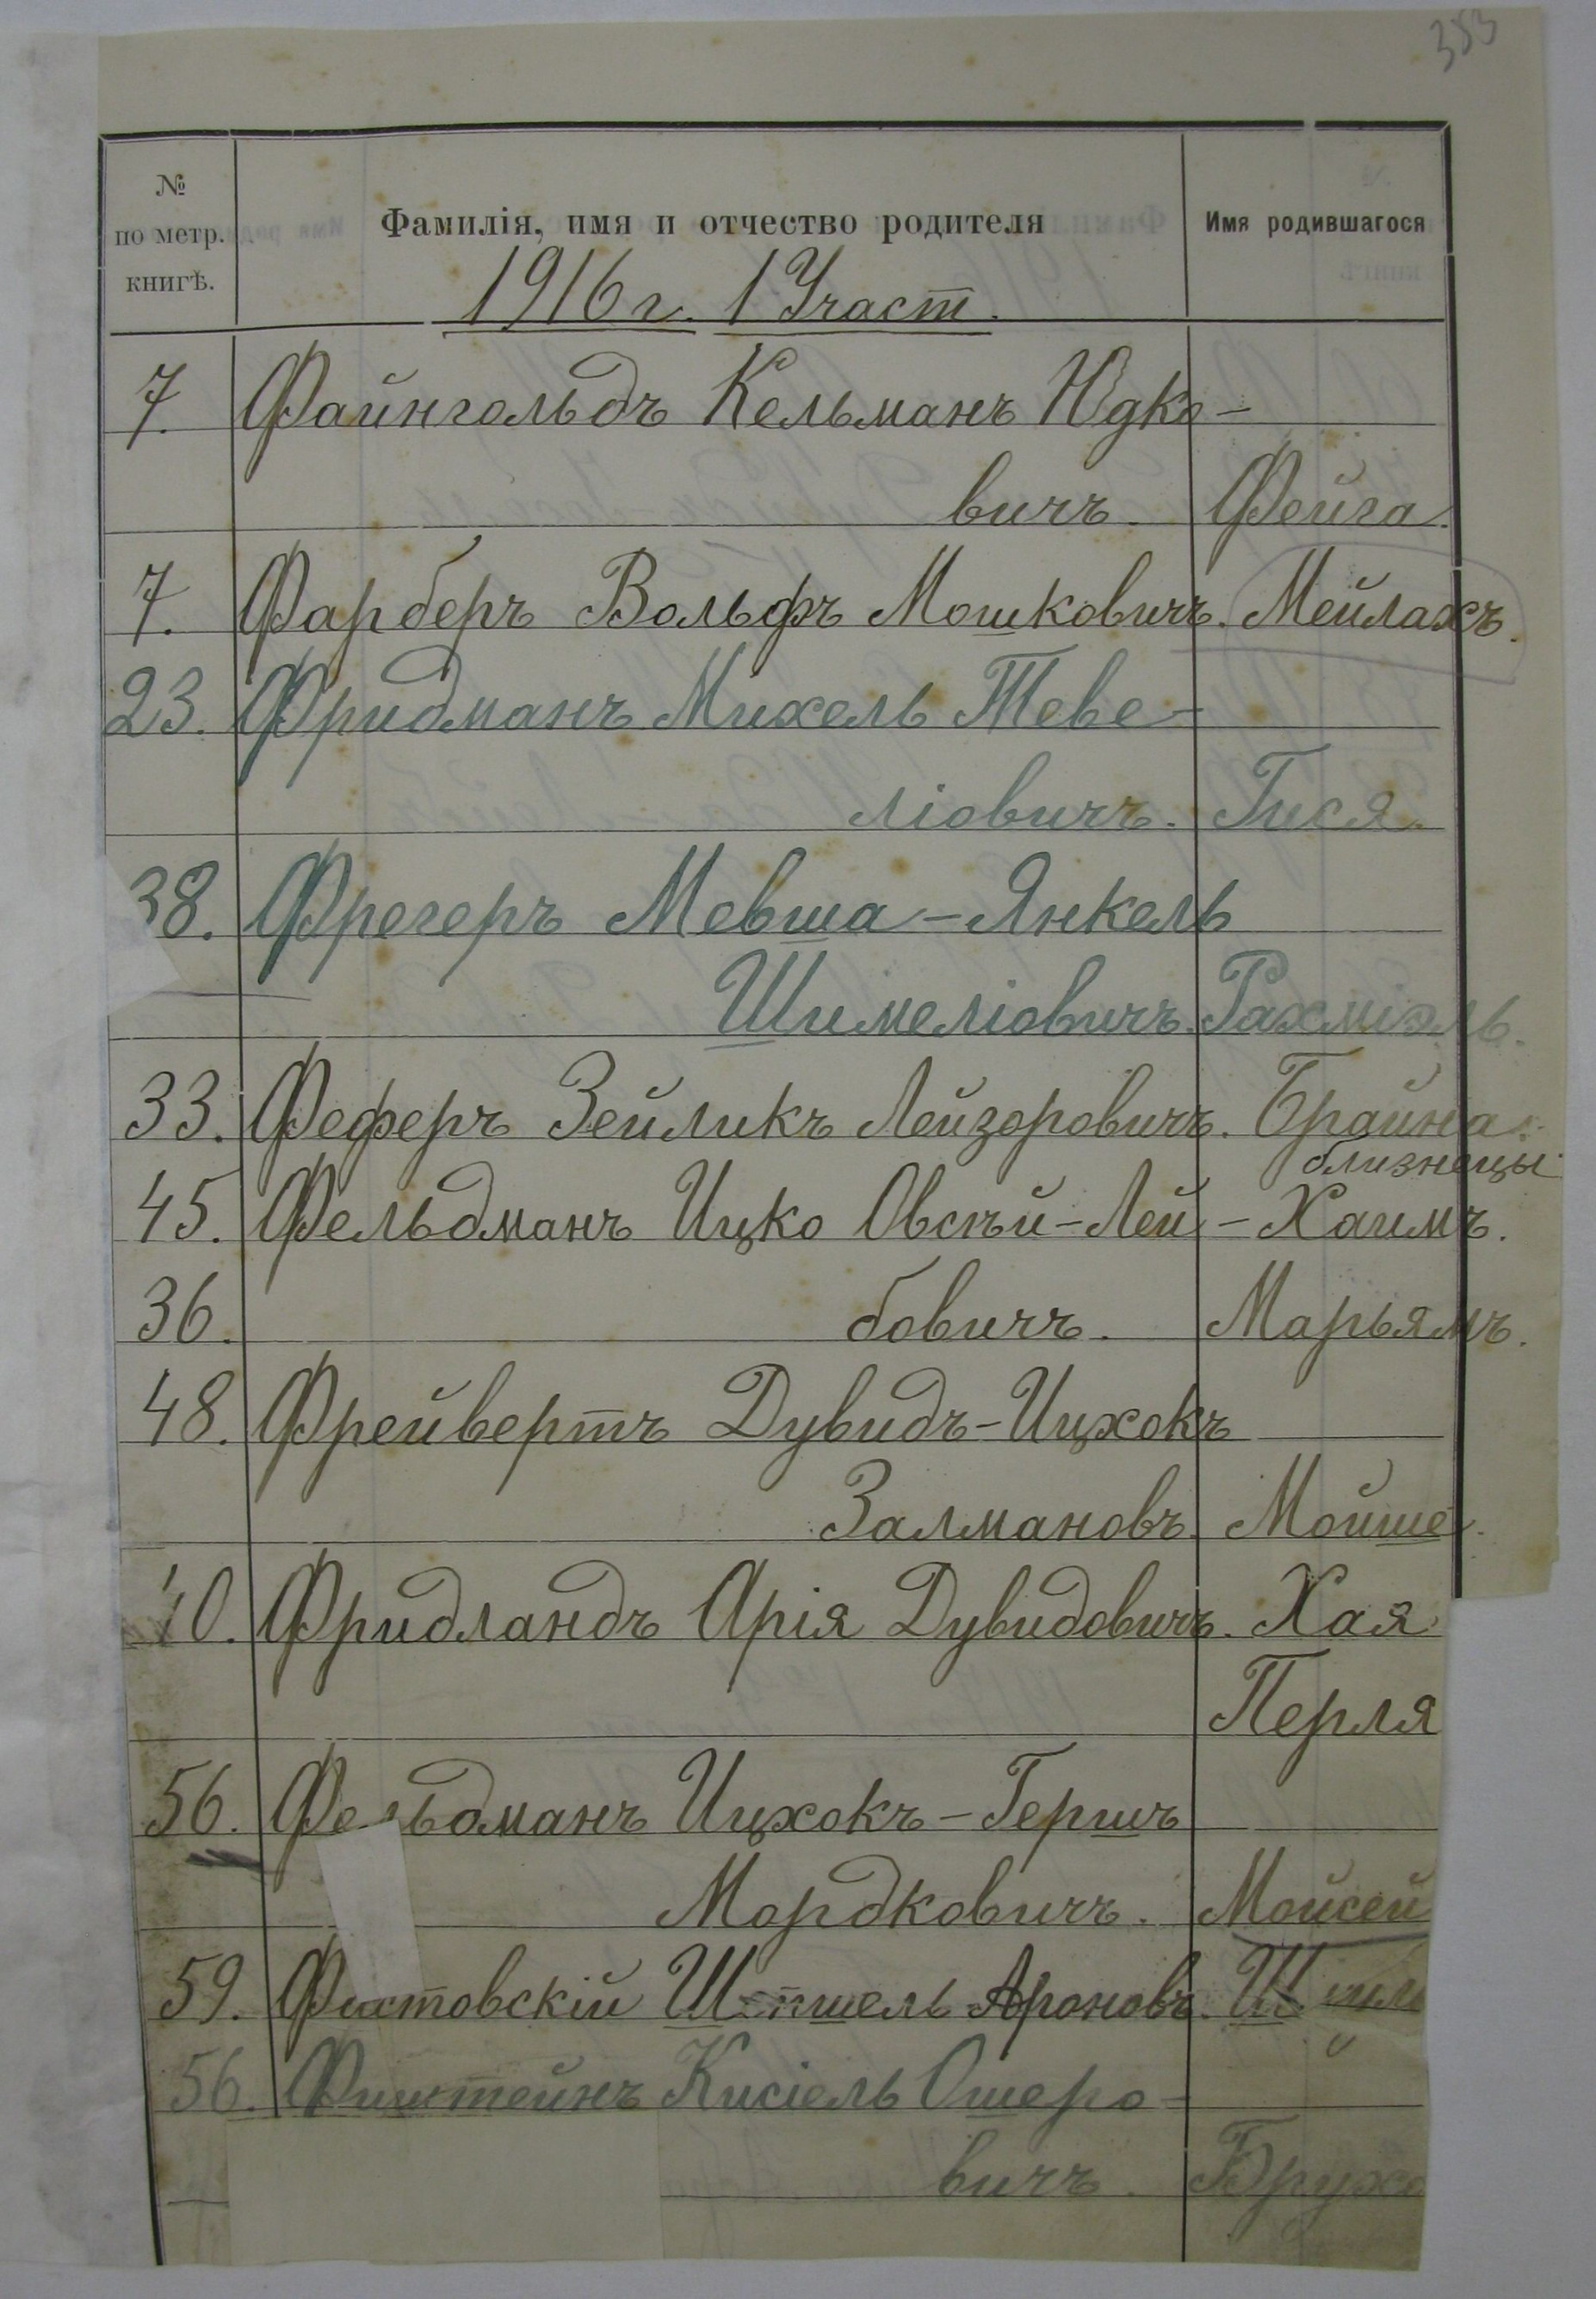 383
№ по метр. книгѣ.
Фамилія, имя и отчество родителя
Имя родившагося
1916 г. 1 Участ.
7. Файнгольдъ Кельманъ Юдко-
вичъ. Фейга.
7. Фарберъ Вольфъ Мошковичъ. Мейлахъ.
23. Фридманъ Михель Теве-
ліовичъ. Гися.
38. Фрегеръ Мевша-Янкель
Шимеліовичъ. Рахміэль.
33. Феферъ Зейликъ Лейзоровичъ. Брайна.
близнецы
45. Фельдманъ Ицко Овсѣй-Лей- Хаимъ.
36. бовичъ. Марьямъ.
48. Фрейвертъ Дувидъ-Ицхокъ
Залмановъ. Мойше.
40. Фридландъ Арія Дувидовичъ. Хая
Перля
56. Фельдманъ Ицхокъ-Гершъ
Мордковичъ. Мойсей
59. Фастовскій Ароновъ.
56. Финтейнъ Кисіель Ошеро-
вичъ. Бруха